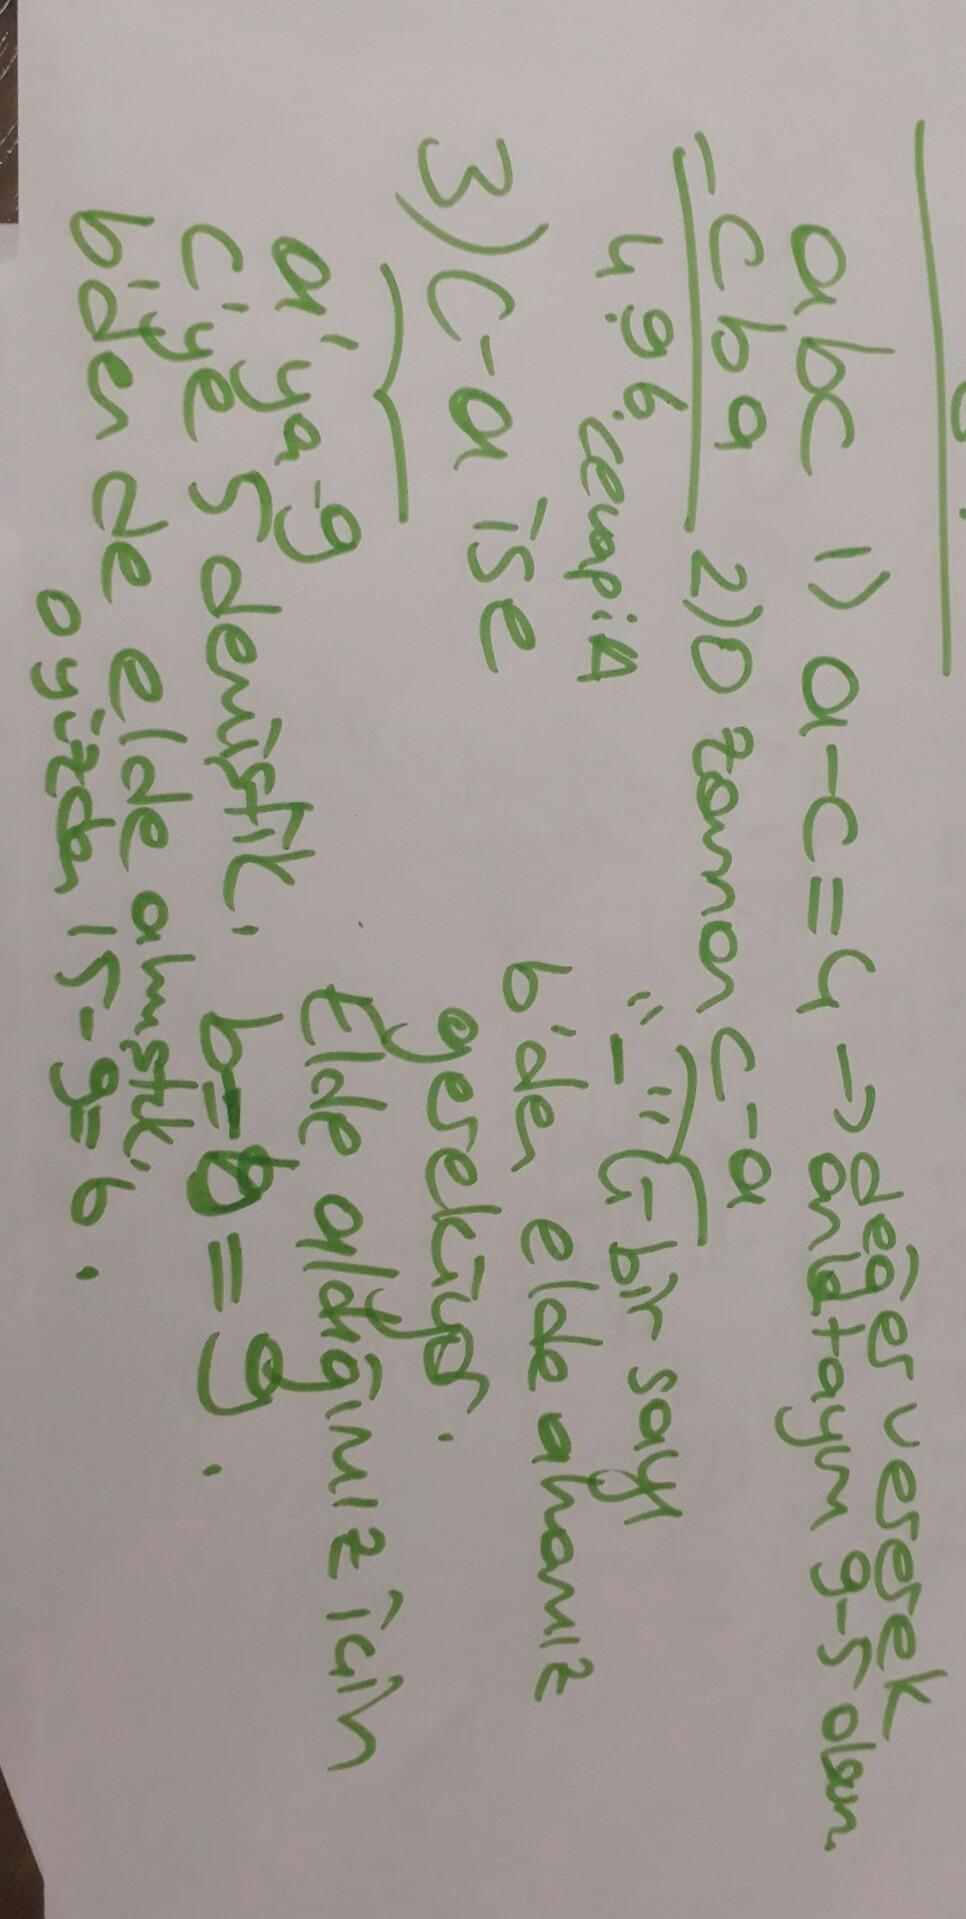 abc 1) a-c=4 → değer vererek
anlatayım 9-5 olsun.
-cba 2) O zaman c-a
496 cevap: A "-" li bir sayı
b'den elde almamız
gerekiyor.
3) c-a ise
Elde aldığımız için
b-b=9.
a'ya 9
c'ye 5 demiştik.
b'den de elde almıştık.
o yüzden 15-9=6.